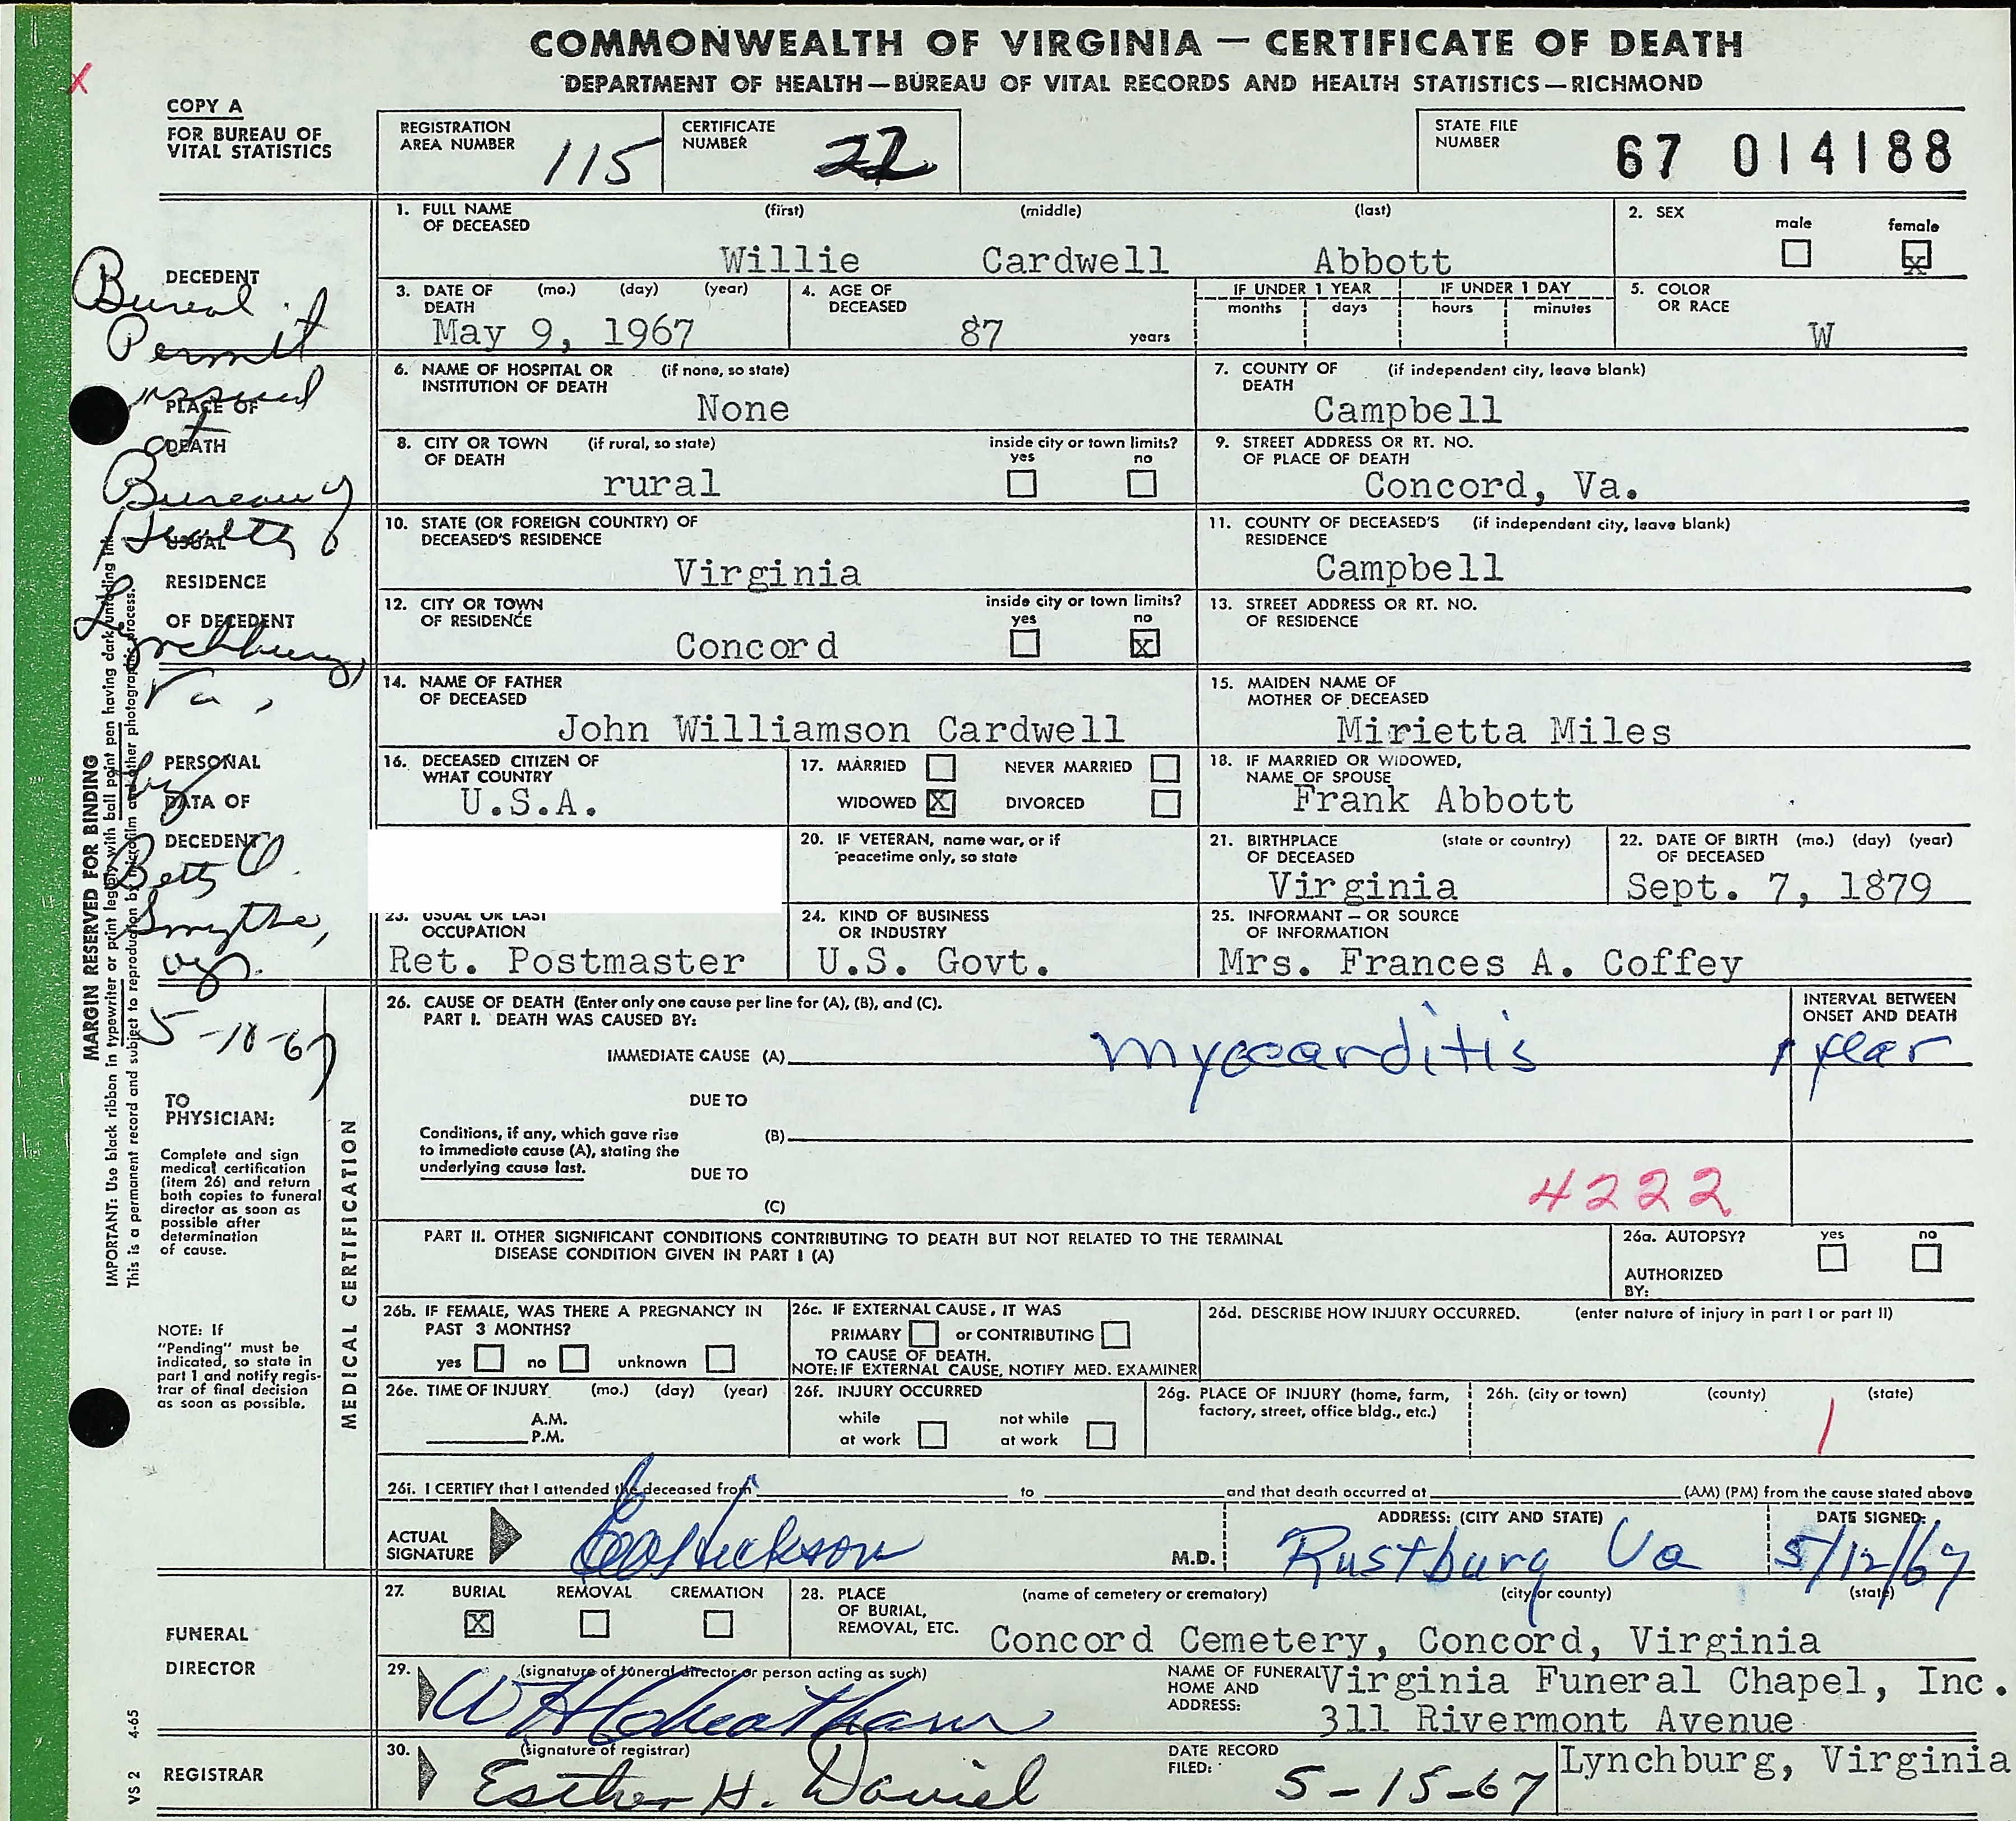 COMMONWEALTH OF VIRGINIA — CERTIFICATE OF DEATH
DEPARTMENT OF HEALTH—BUREAU OF VITAL RECORDS AND HEALTH STATISTICS—RICHMOND
COPY A
FOR BUREAU OF
VITAL STATISTICS
REGISTRATION
AREA NUMBER 115
CERTIFICATE
NUMBER
STATE FILE
NUMBER 67 014188
DECEDENT
1. FULL NAME (first) (middle) (last)
OF DECEASED
Willie Cardwell Abbott
2. SEX
male female
x
3. DATE OF (mo.) (day) (year)
DEATH
May 9, 1967
4. AGE OF
DECEASED
87 years
IF UNDER 1 YEAR
months days
IF UNDER 1 DAY
hours minutes
5. COLOR
OR RACE
W
PLACE OF
DEATH
6. NAME OF HOSPITAL OR (if none, so state)
INSTITUTION OF DEATH
None
7. COUNTY OF (if independent city, leave blank)
DEATH
Campbell
8. CITY OR TOWN (if rural, so state)
OF DEATH
inside city or town limits?
yes no
rural
9. STREET ADDRESS OR RT. NO.
OF PLACE OF DEATH
Concord, Va.
USUAL
RESIDENCE
OF DECEDENT
10. STATE (OR FOREIGN COUNTRY) OF
DECEASED'S RESIDENCE
Virginia
11. COUNTY OF DECEASED'S (if independent city, leave blank)
RESIDENCE
Campbell
12. CITY OR TOWN
OF RESIDENCE
inside city or town limits?
yes no
Concord x
13. STREET ADDRESS OR RT. NO.
OF RESIDENCE
PERSONAL
DATA OF
DECEDENT
14. NAME OF FATHER
OF DECEASED
John Williamson Cardwell
15. MAIDEN NAME OF
MOTHER OF DECEASED
Mirietta Miles
16. DECEASED CITIZEN OF
WHAT COUNTRY
U.S.A.
17. MARRIED NEVER MARRIED
WIDOWED X DIVORCED
18. IF MARRIED OR WIDOWED,
NAME OF SPOUSE
Frank Abbott
20. IF VETERAN, name war, or if
peacetime only, so state
21. BIRTHPLACE (state or country)
OF DECEASED
Virginia
22. DATE OF BIRTH (mo.) (day) (year)
OF DECEASED
Sept. 7, 1879
23. USUAL OR LAST
OCCUPATION
Ret. Postmaster
24. KIND OF BUSINESS
OR INDUSTRY
U.S. Govt.
25. INFORMANT — OR SOURCE
OF INFORMATION
Mrs. Frances A. Coffey
Burial
Permit
issued
at
Bureau of
Health
Lynchburg,
Va,
by
Betty O.
Smythe,
5-10-67
MARGIN RESERVED FOR BINDING
IMPORTANT: Use black ribbon in typewriter or print legibly with ball point pen having dark unfading ink.
This is a permanent record and subject to reproduction by microfilm and other photographic process.
TO
PHYSICIAN:
Complete and sign
medical certification
(item 26) and return
both copies to funeral
director as soon as
possible after
determination
of cause.
NOTE: If
"Pending" must be
indicated, so state in
part 1 and notify regis-
trar of final decision
as soon as possible.
MEDICAL CERTIFICATION
26. CAUSE OF DEATH (Enter only one cause per line for (A), (B), and (C).
PART I. DEATH WAS CAUSED BY:
INTERVAL BETWEEN
ONSET AND DEATH
IMMEDIATE CAUSE (A) myocarditis 1 year
DUE TO
Conditions, if any, which gave rise
to immediate cause (A), stating the
underlying cause last.
(B)
DUE TO
(C)
4222
PART II. OTHER SIGNIFICANT CONDITIONS CONTRIBUTING TO DEATH BUT NOT RELATED TO THE TERMINAL
DISEASE CONDITION GIVEN IN PART I (A)
26a. AUTOPSY? yes no
AUTHORIZED
BY:
26b. IF FEMALE, WAS THERE A PREGNANCY IN
PAST 3 MONTHS?
yes no unknown
26c. IF EXTERNAL CAUSE, IT WAS
PRIMARY or CONTRIBUTING
TO CAUSE OF DEATH.
NOTE: IF EXTERNAL CAUSE, NOTIFY MED. EXAMINER
26d. DESCRIBE HOW INJURY OCCURRED. (enter nature of injury in part I or part II)
26e. TIME OF INJURY (mo.) (day) (year)
A.M.
P.M.
26f. INJURY OCCURRED
while at work
not while at work
26g. PLACE OF INJURY (home, farm,
factory, street, office bldg., etc.)
26h. (city or town) (county) (state)
26i. I CERTIFY that I attended the deceased from to and that death occurred at (AM) (PM) from the cause stated above
ACTUAL
SIGNATURE
M.D.
ADDRESS: (CITY AND STATE)
Rustburg Va
DATE SIGNED:
5/12/67
FUNERAL
DIRECTOR
27. BURIAL REMOVAL CREMATION
X
28. PLACE
OF BURIAL,
REMOVAL, ETC.
(name of cemetery or crematory) (city or county) (state)
Concord Cemetery, Concord, Virginia
29. (signature of funeral director or person acting as such)
NAME OF FUNERAL
HOME AND
ADDRESS:
Virginia Funeral Chapel, Inc.
311 Rivermont Avenue
Lynchburg, Virginia
REGISTRAR
30. (signature of registrar)
Esther H. Daniel
DATE RECORD
FILED: 5-15-67
VS 2 4-65